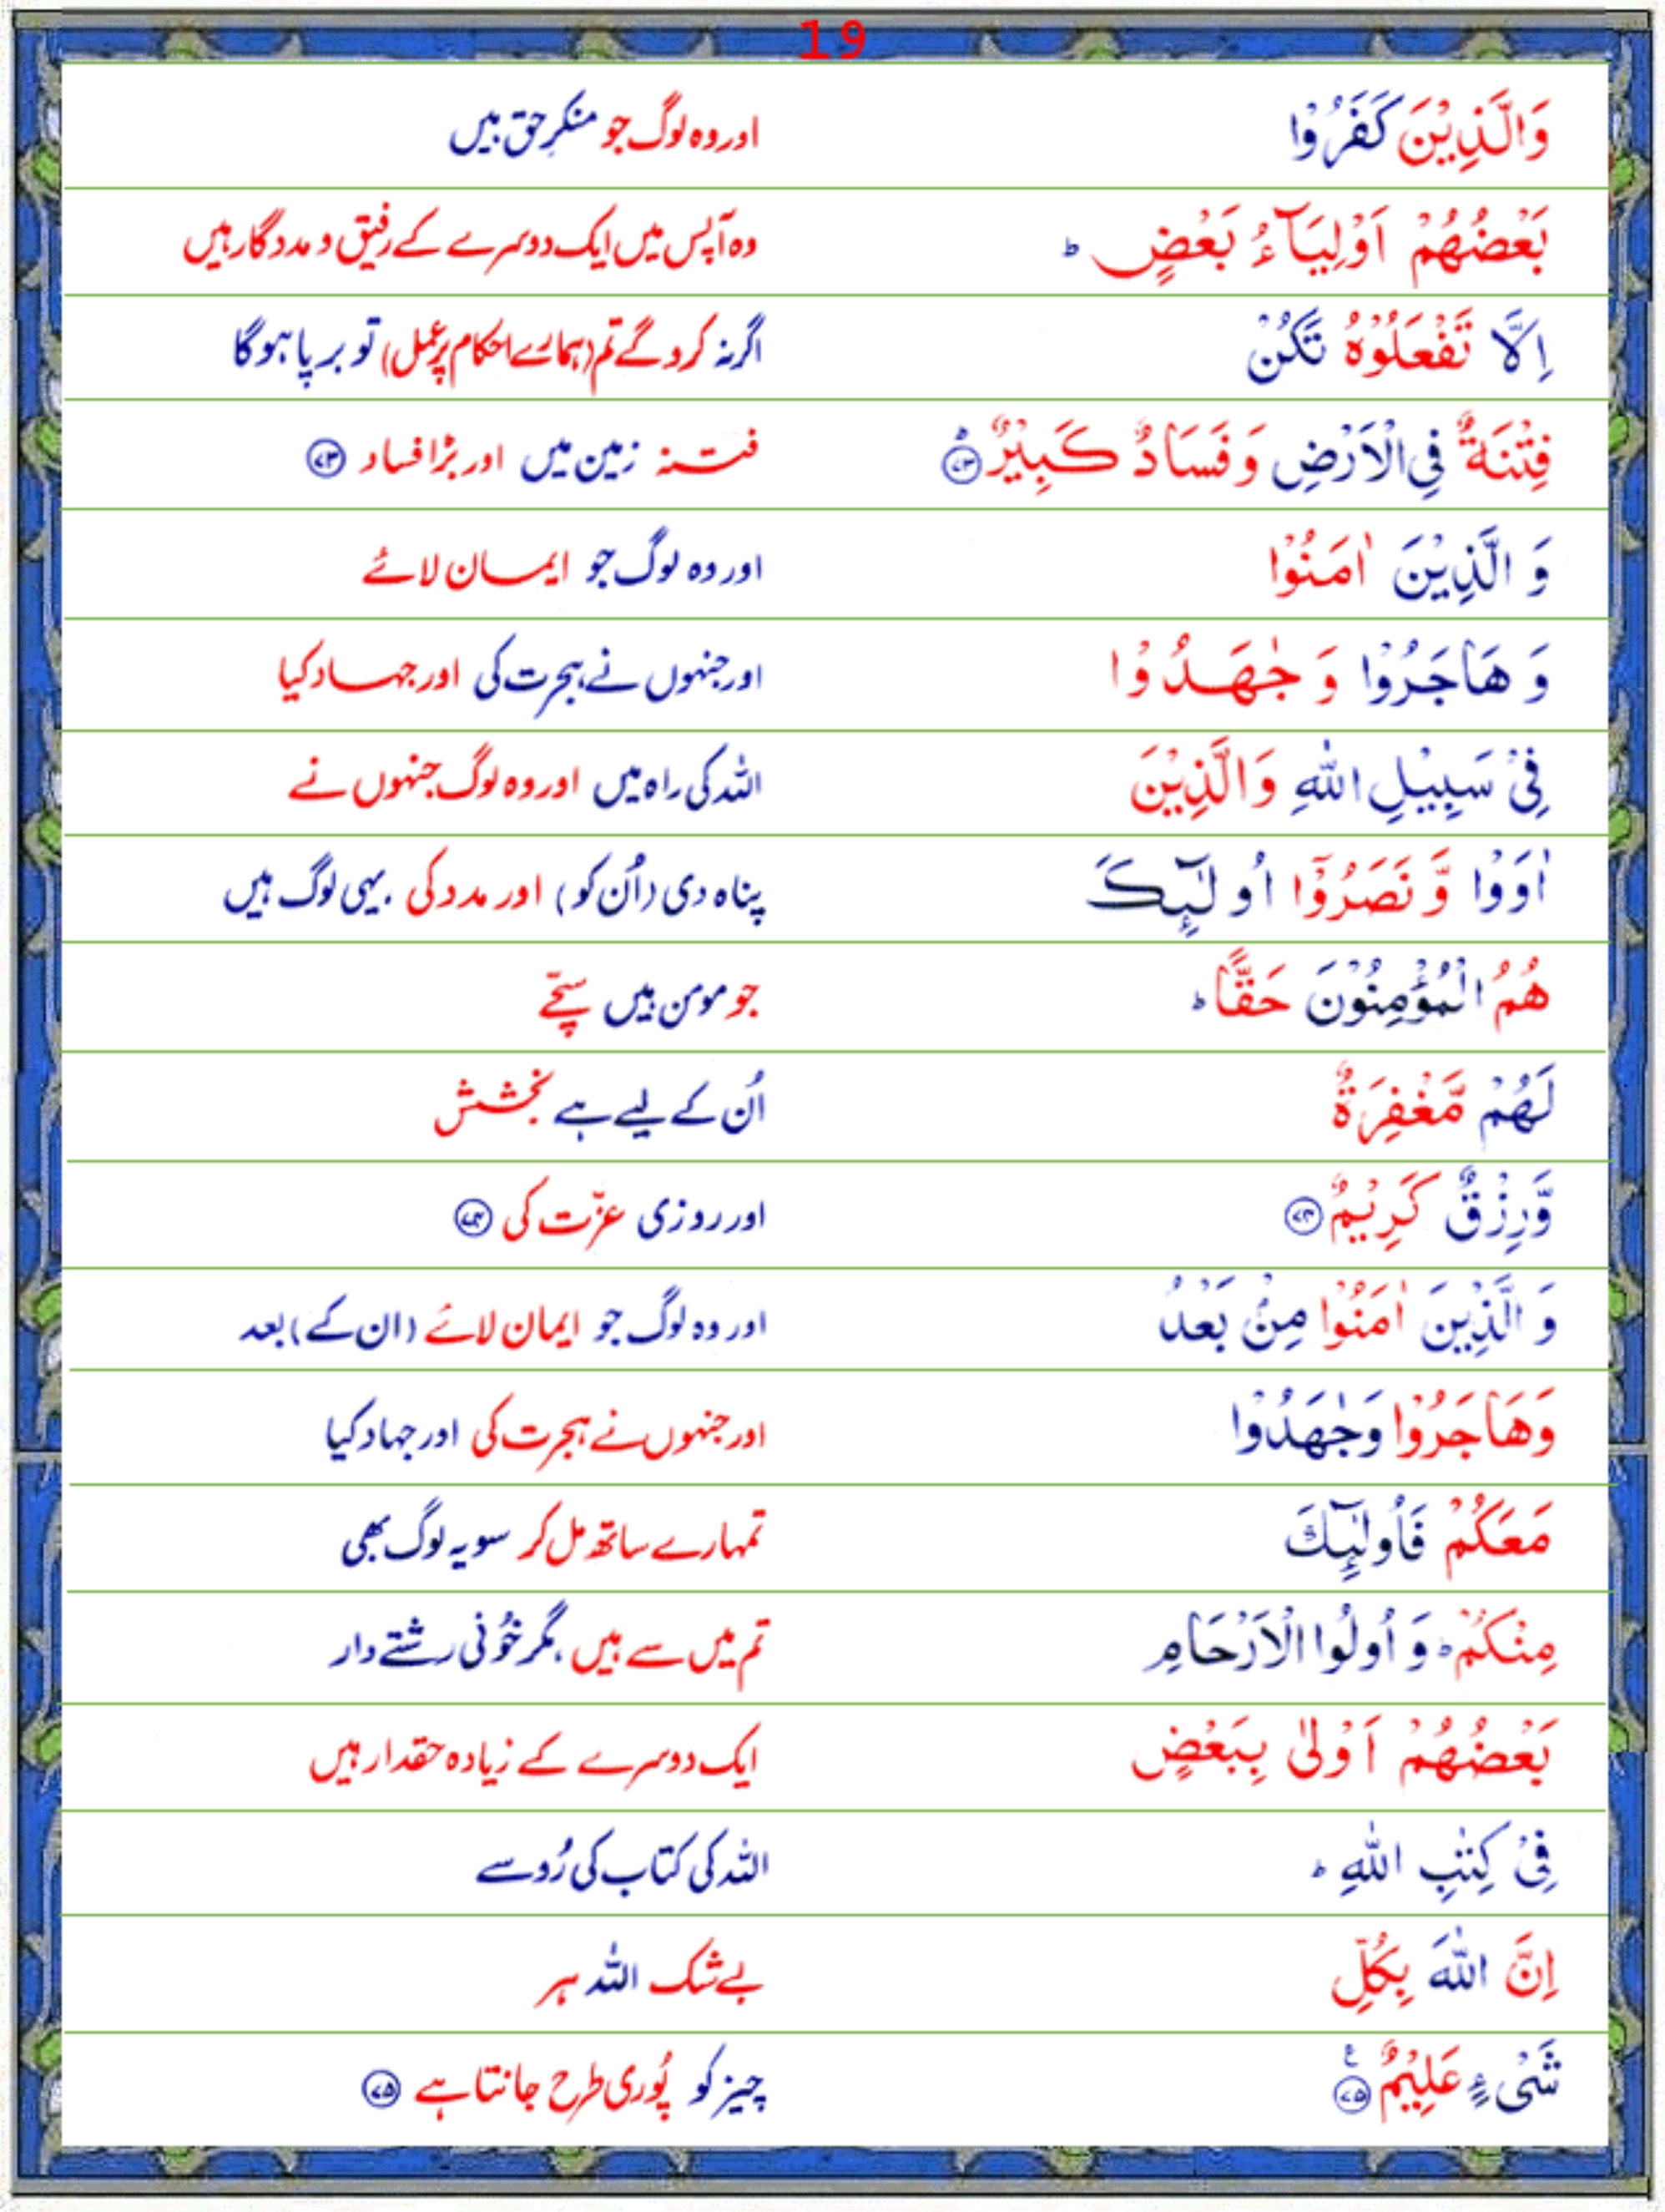 19
وَالَّذِيْنَ كَفَرُوْا اور وہ لوگ جو منکرِ حق ہیں
بَعْضُهُمْ اَوْلِيَآءُ بَعْضٍ ؕ وہ آپس میں ایک دوسرے کے رفیق و مددگار ہیں
اِلَّا تَفْعَلُوْهُ تَكُنْ اگر نہ کرو گے تم (ہمارے احکام پر عمل) تو برپا ہوگا
فِتْنَةٌ فِي الْاَرْضِ وَفَسَادٌ كَبِيْرٌؕ ﴿۷۳﴾ فتنہ زمین میں اور بڑا فساد ﴿۷۳﴾
وَ الَّذِيْنَ اٰمَنُوْا اور وہ لوگ جو ایمان لائے
وَ هَاجَرُوْا وَ جٰهَدُوْا اور جنہوں نے ہجرت کی اور جہاد کیا
فِيْ سَبِيْلِ اللّٰهِ وَالَّذِيْنَ اللہ کی راہ میں اور وہ لوگ جنہوں نے
اٰوَوْا وَّ نَصَرُوْۤا اُولٰٓئِكَ پناہ دی (اُن کو) اور مدد کی، یہی لوگ ہیں
هُمُ الْمُؤْمِنُوْنَ حَقًّا ؕ جو مومن ہیں سچّے
لَهُمْ مَّغْفِرَةٌ اُن کے لیے ہے بخشش
وَّرِزْقٌ كَرِيْمٌ ﴿۷۴﴾ اور روزی عزّت کی ﴿۷۴﴾
وَ الَّذِيْنَ اٰمَنُوْا مِنْۢ بَعْدُ اور وہ لوگ جو ایمان لائے (ان کے) بعد
وَهَاجَرُوْا وَجٰهَدُوْا اور جنہوں نے ہجرت کی اور جہاد کیا
مَعَكُمْ فَاُولٰٓئِكَ تمہارے ساتھ مل کر سو یہ لوگ بھی
مِنْكُمْ ؕ وَ اُولُوا الْاَرْحَامِ تم میں سے ہیں، مگر خُونی رشتے دار
بَعْضُهُمْ اَوْلٰى بِبَعْضٍ ایک دوسرے کے زیادہ حقدار ہیں
فِيْ كِتٰبِ اللّٰهِ ؕ اللہ کی کتاب کی رُو سے
اِنَّ اللّٰهَ بِكُلِّ بے شک اللہ ہر
شَيْءٍ عَلِيْمٌ ﴿۷۵﴾ ع چیز کو پُوری طرح جانتا ہے ﴿۷۵﴾